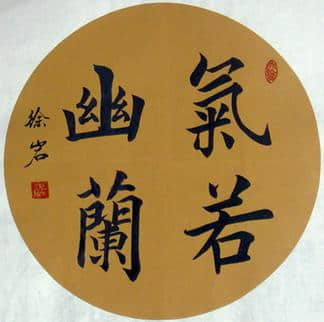 氣若
幽蘭
徐岩